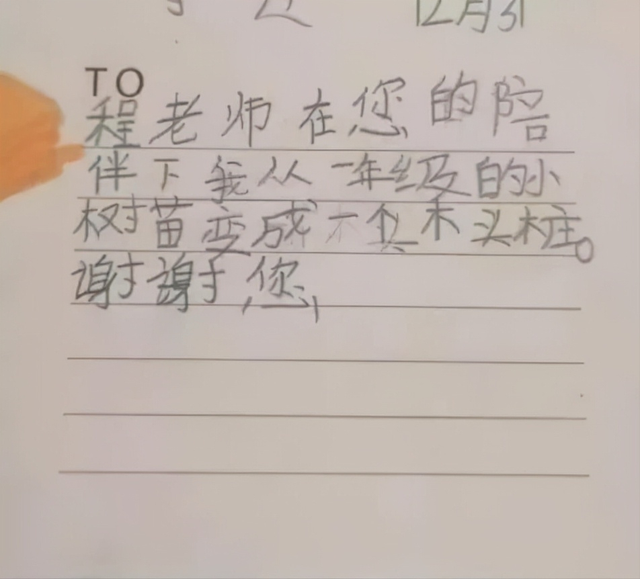 12月31
TO
程老师在您的陪
伴下我从一年级的小
树苗变成一个木头桩。
谢谢您,